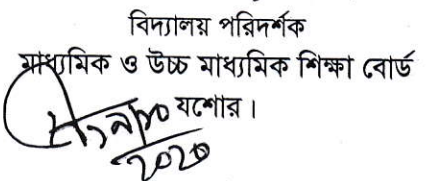 বিদ্যালয় পরিদর্শক
মাধ্যমিক ও উচ্চ মাধ্যমিক শিক্ষা বোর্ড
যশোর।
2020